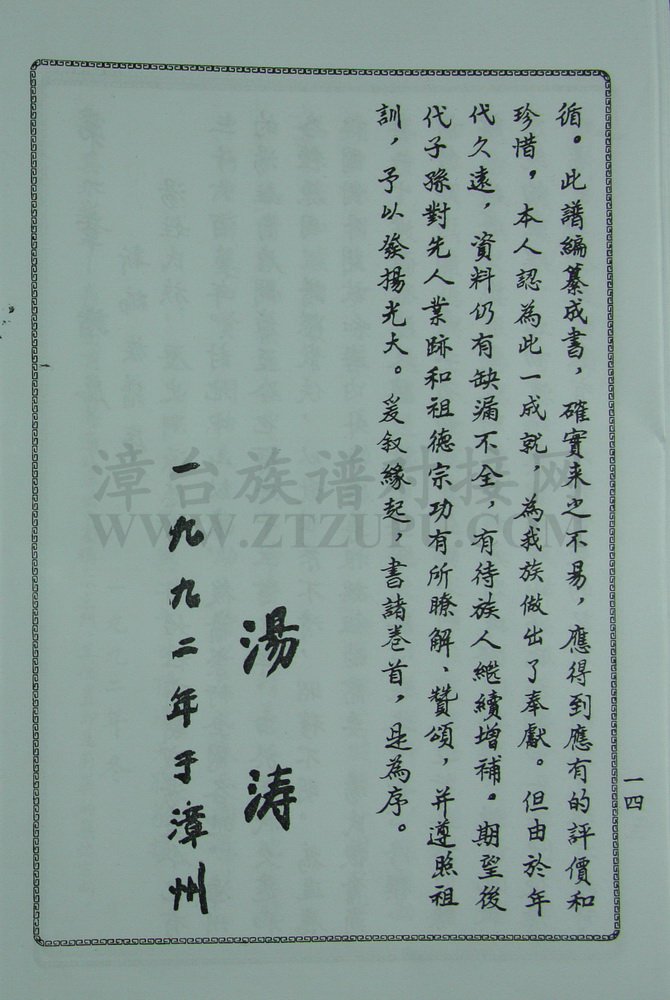 循。此譜編纂成書，確實来之不易，應得到應有的評價和
珍惜，本人認為此一成就，為我族做出了奉獻。但由於年
代久遠，資料仍有缺漏不全，有待族人繼續增補。期望後
代子孫對先人業跡和祖德宗功有所瞭解、贊頌，并遵照祖
訓，予以發揚光大。爰叙緣起，書諸卷首，是為序。
湯涛
一九九二年于漳州
一四
漳台族谱对接网
WWW.ZTZUPU.COM